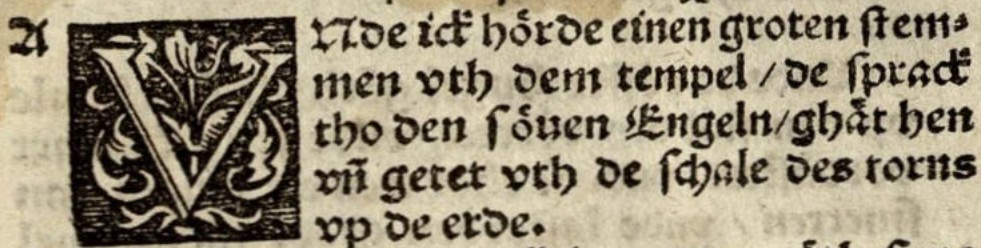 A VNde ick hörde einen groten ſtem⸗
men vth dem tempel / de ſprack
tho den ſöuen Engeln/ghät hen
vñ getet vth de ſchale des torns
vp de erde.